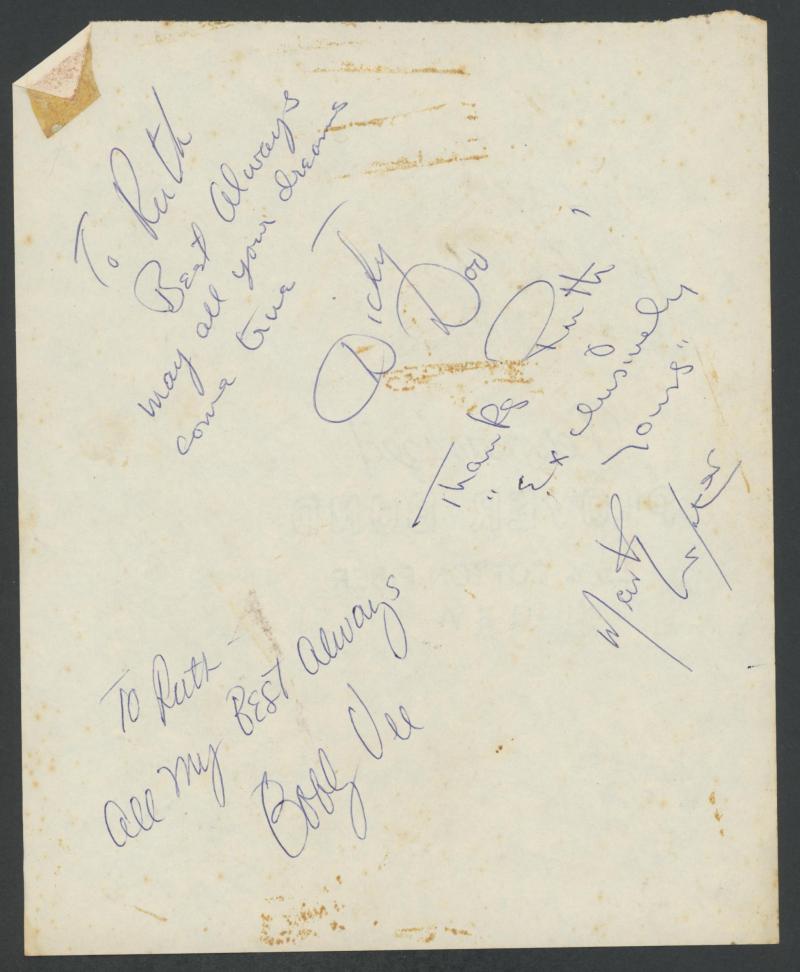 To Ruth
Best Always
may all your dreams
come true
Dicky
Doo
Thanks Ruth,
"Exclusively
Yours"
Mark
To Ruth -
All My BEST Always
Bobby Vee